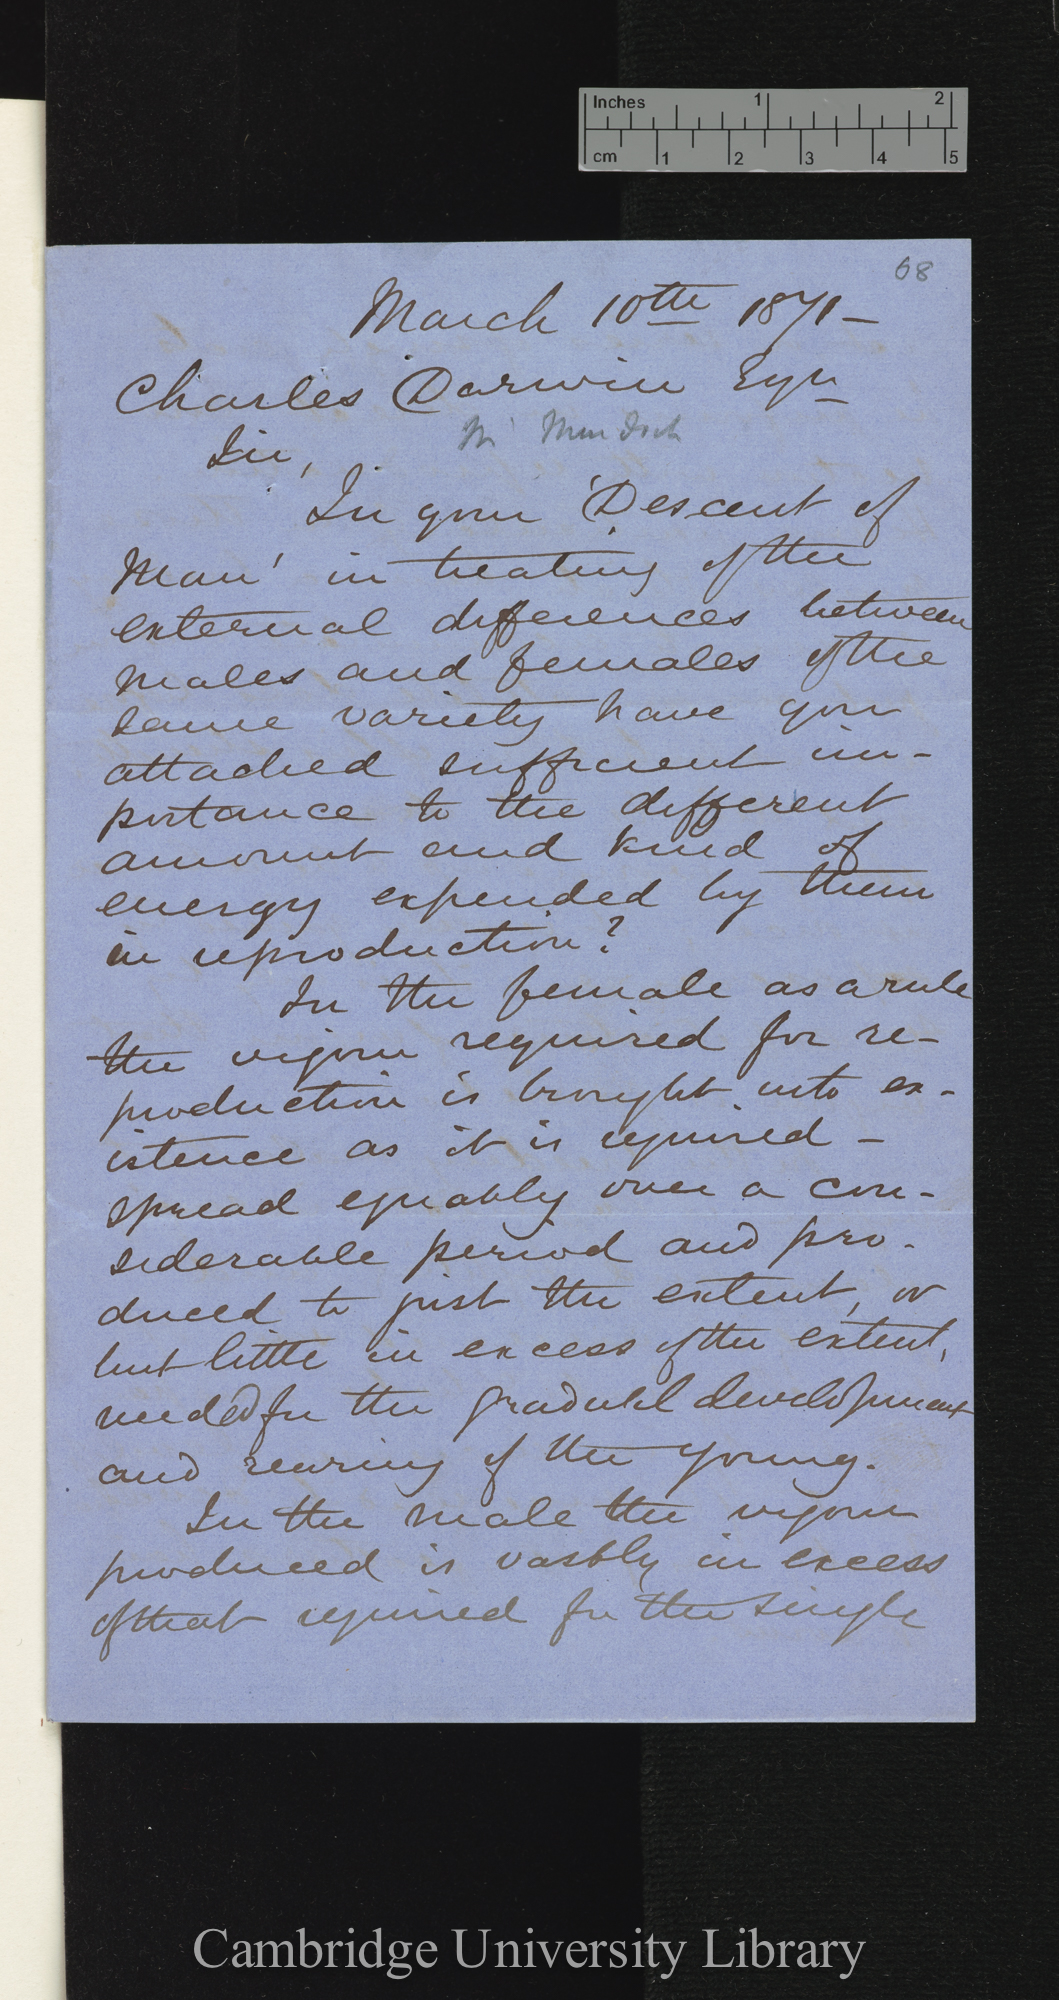 Inches 1 2
cm 1 2 3 4 5
68
March 10th 1871–
Charles Darwin Esqr
Mr Murdoch
Sir,
In your 'Descent of
Man' in treating of the
external differences between
males and females of the
same variety have you
attached sufficient im-
portance to the different
amount and kind of
energy expended by them
in reproduction?
In the female as a rule
the vigour required for re-
production is brought into ex-
istence as it is required –
spread equably over a con-
siderable period and pro-
duced to just the extent, or
but little in excess of the extent,
needed for the gradual development
and rearing of the young.
In the male the vigour
produced is vastly in excess
of that required for the single
Cambridge University Library